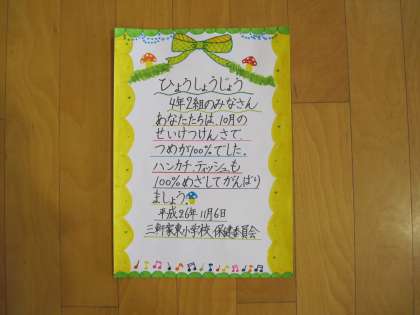 ひょうしょうじょう
4年2組のみなさん
あなたたちは、10月の
せいけつけんさで
つめが100%でした。
ハンカチ、ティッシュも
100%めざしてがんばり
ましょう。
平成26年11月6日
三軒家東小学校 保健委員会